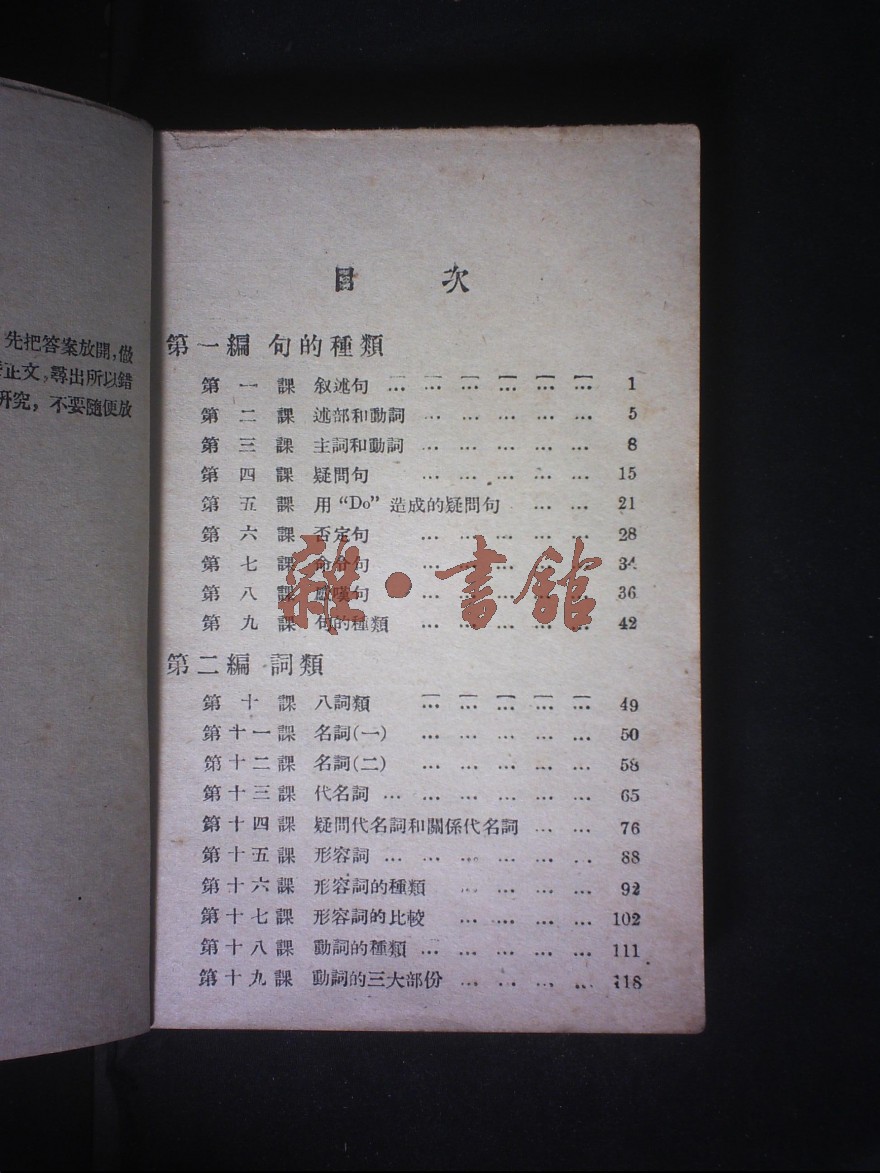 先把答案放開,做
正文,尋出所以錯
研究, 不要隨便放
目 次
第一編 句的種類
第一課 叙述句 … … … … … … 1
第二課 述部和動詞 … … … … … 5
第三課 主詞和動詞 … … … … … 8
第四課 疑問句 … … … … … 15
第五課 用“Do”造成的疑問句 … … 21
第六課 否定句 … … … … … 28
第七課 命令句 … … … … … 34
第八課 感嘆句 … … … … … 36
第九課 句的種類 … … … … … 42
雜·書館
第二編 詞類
第十課 八詞類 … … … … … 49
第十一課 名詞(一) … … … … … 50
第十二課 名詞(二) … … … … … 58
第十三課 代名詞 … … … … … … 65
第十四課 疑問代名詞和關係代名詞 … … 76
第十五課 形容詞 … … … … … … 88
第十六課 形容詞的種類 … … … … 92
第十七課 形容詞的比較 … … … … 102
第十八課 動詞的種類 … … … … … 111
第十九課 動詞的三大部份 … … … … 118